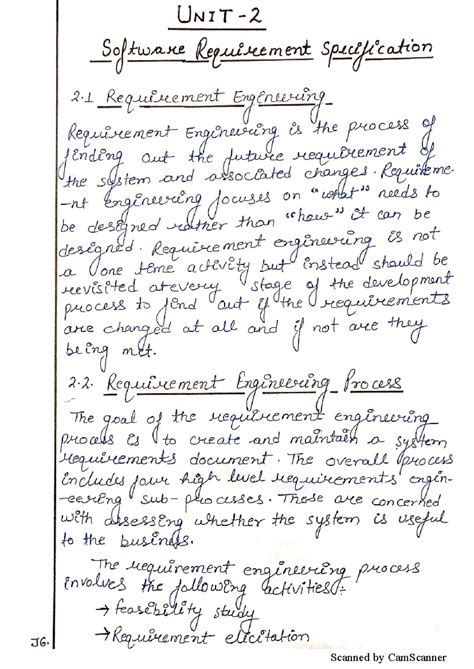 UNIT-2
Software Requirement Specification
2.1 Requirement Engineering
Requirement Engineering is the process of
finding out the future requirement of
the system and associated changes. Requireme-
-nt engineering focuses on "what" needs to
be designed rather than "how" it can be
designed. Requirement engineering is not
a one time activity but instead should be
revisited atevery stage of the development
process to find out if the requirements
are changed at all and if not are they
being met.
2.2. Requirement Engineering Process
The goal of the requirement engineering
process is to create and maintain a system
requirements document. The overall process
includes four high level requirements engin-
-eering sub-processes. These are concerned
with assessing whether the system is useful
to the business.
The requirement engineering process
involves the following activities:-
→ feasibility study
→ Requirement elicitation
JG.
Scanned by CamScanner